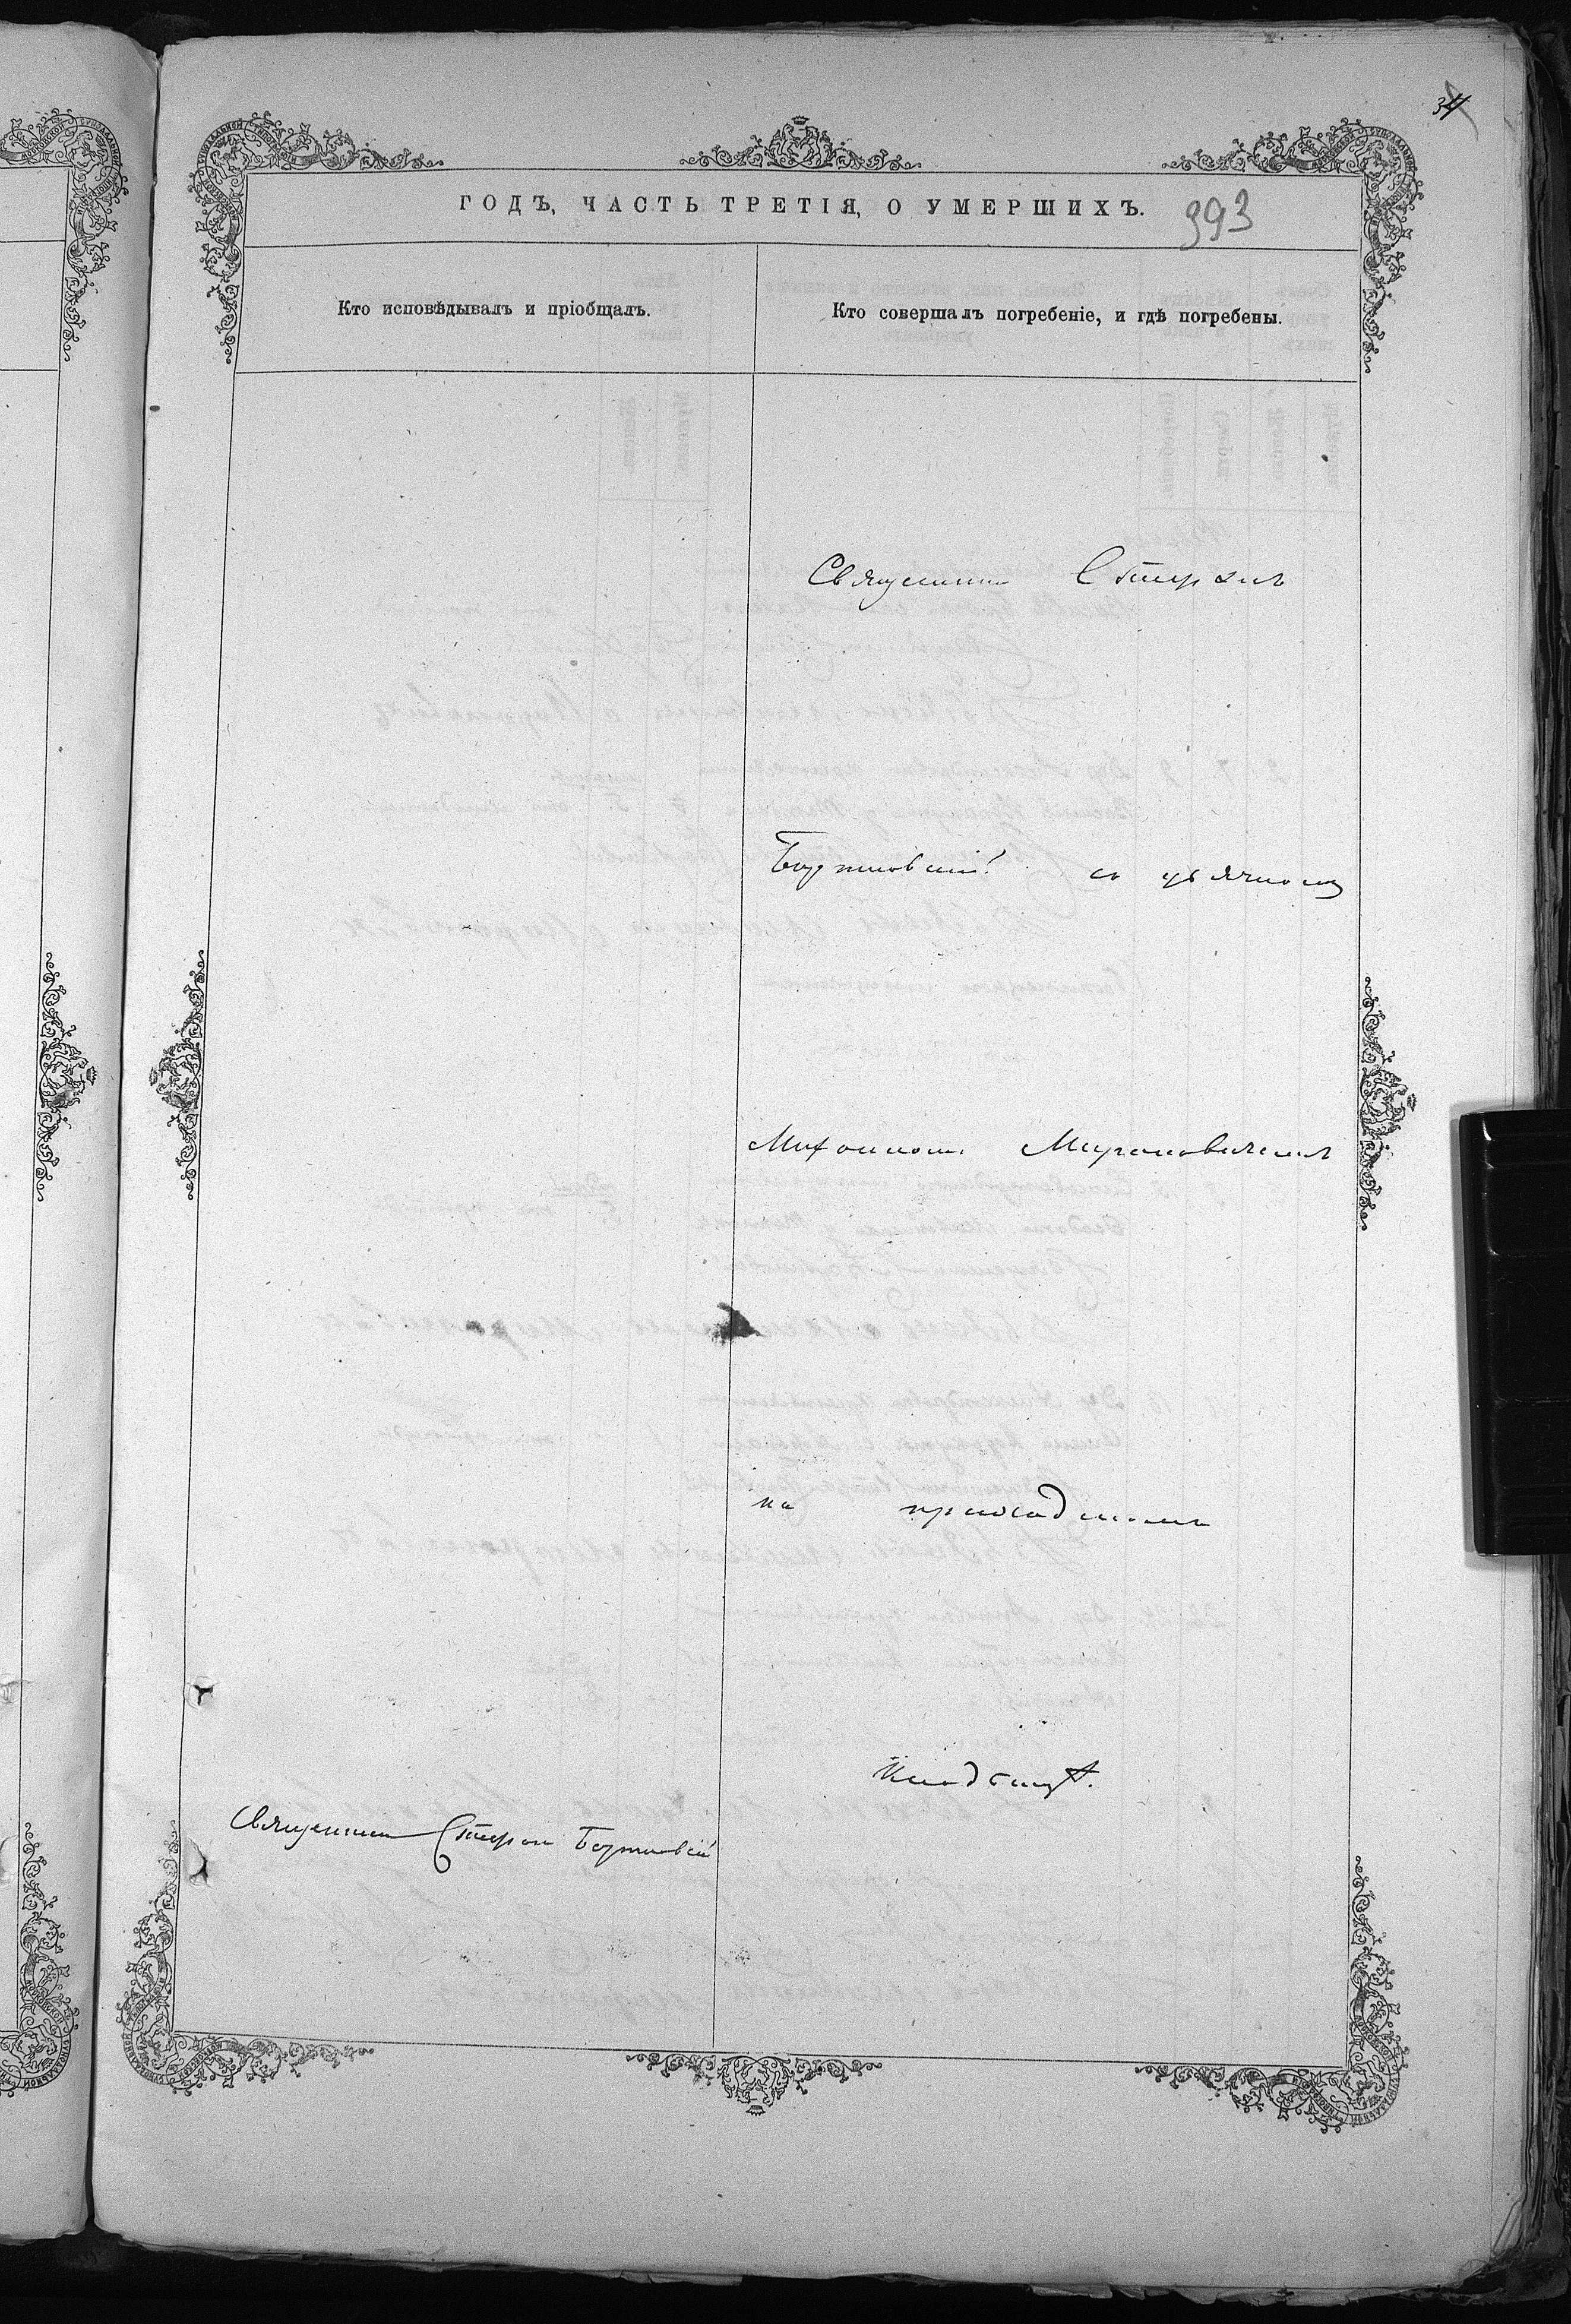 34
ГОДЪ, ЧАСТЬ ТРЕТІЯ, О УМЕРШИХЪ.
993
Кто исповѣдывалъ и пріобщалъ.
Кто совершалъ погребеніе, и гдѣ погребены.
Священникъ Стефанъ
Бортновскій съ
Михаиломъ Мироновичемъ
на приходскомъ
кладбищѣ.
Священникъ Стефанъ Бортновскій